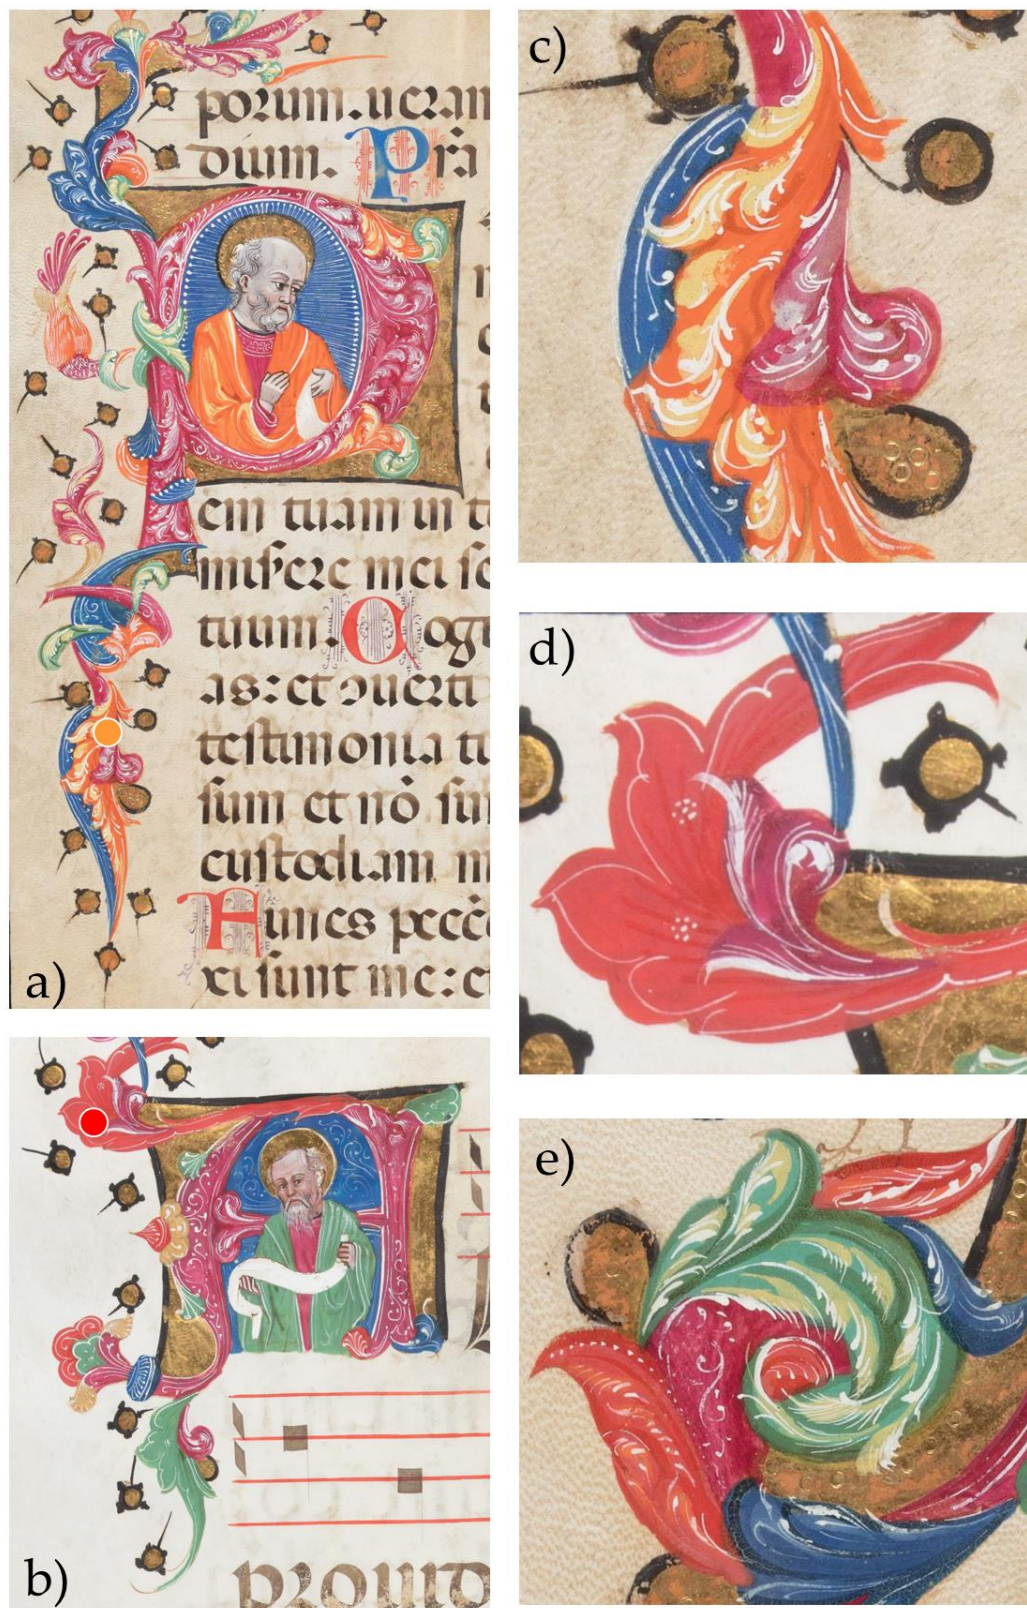 a)
porum. ueram
dium. Pra
em tuam in t
misere mei se
tuum. Cogi
as: et 9uerti
testimonia tu
sum et nõ sun
custodiam m
Funes pecc
xi sunt me: e
b)
prouid
c)
d)
e)